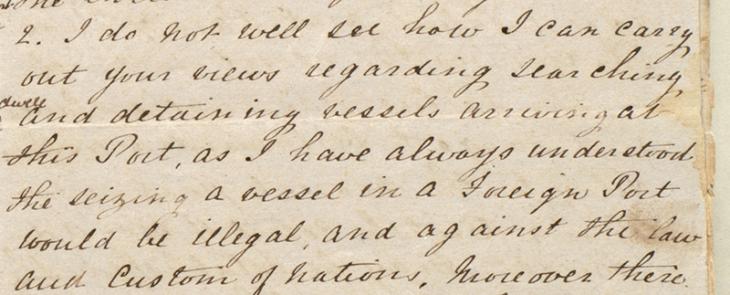 2. I do not well see how I can carry
out your views regarding searching
and detaining vessels arriving at
this Port, as I have always understood
the seizing a vessel in a Foreign Port
would be illegal, and against the law
and Custom of Nations, Moreover there